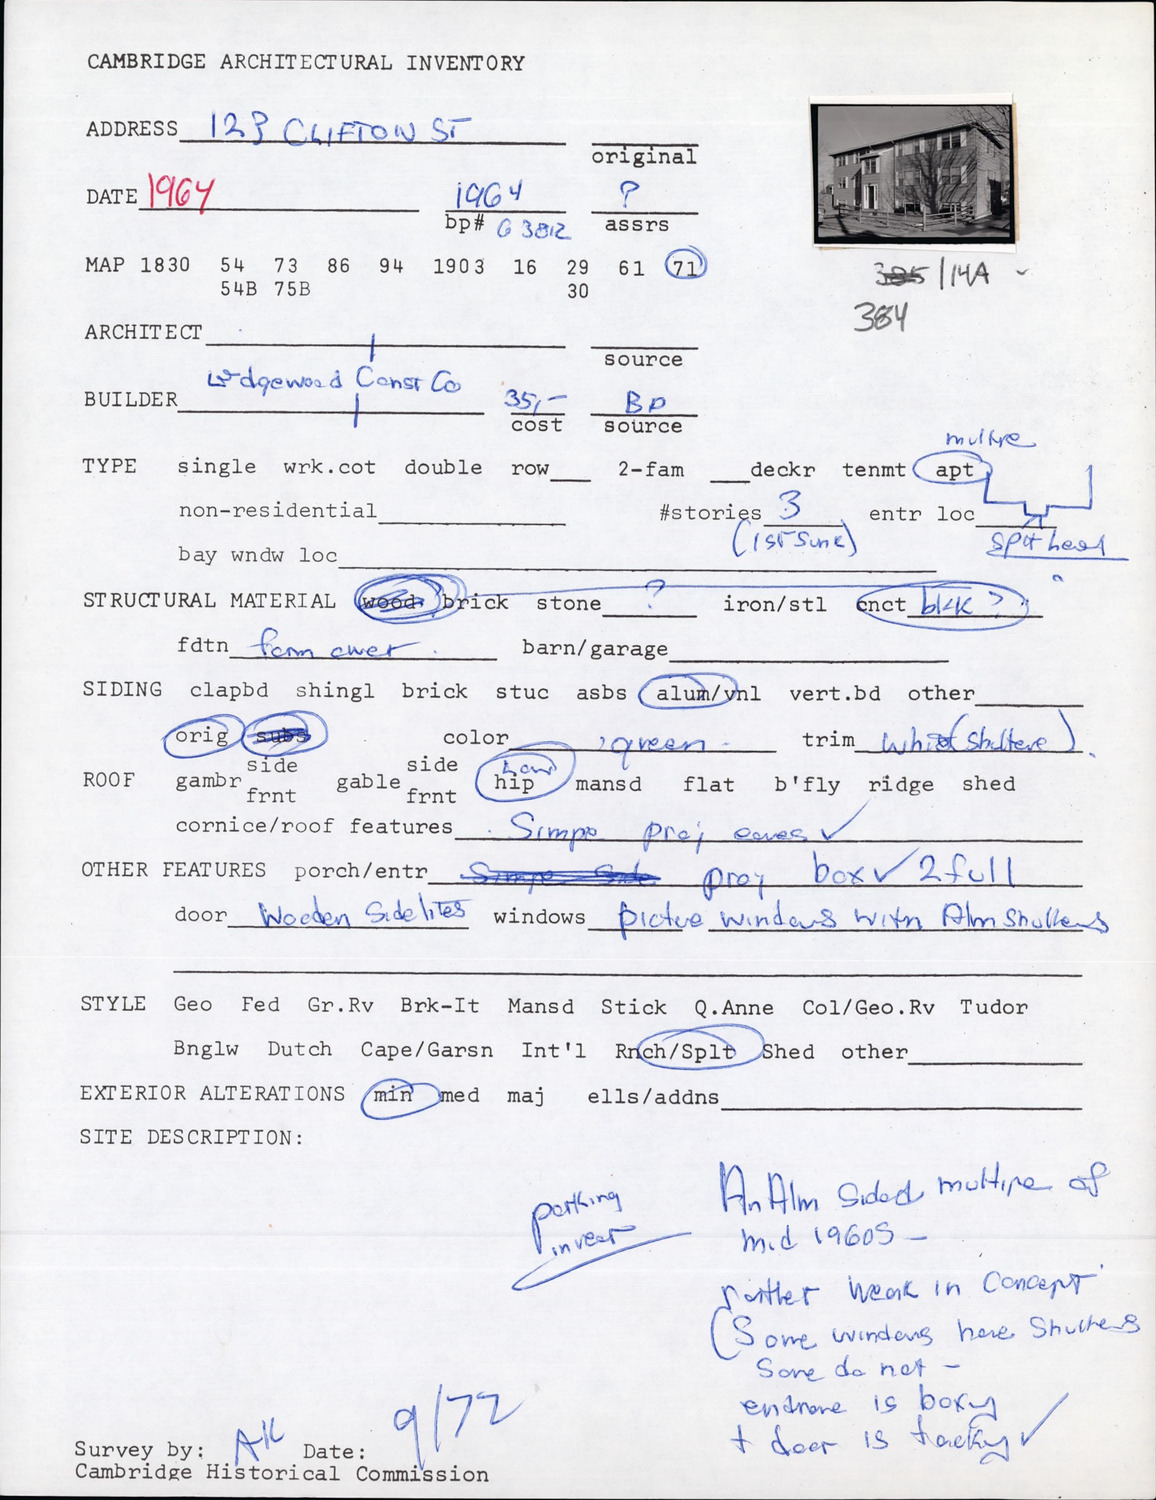 CAMBRIDGE ARCHITECTURAL INVENTORY
ADDRESS 129 CLIFTON ST
original
DATE 1964 1964 ?
bp# G 3812 assrs
MAP 1830 54 73 86 94 1903 16 29 61 71
54B 75B 30
/14A
384
ARCHITECT
source
BUILDER Wdgewood Const Co 35,- BP
cost source
multipe
TYPE single wrk.cot double row 2-fam deckr tenmt apt
non-residential #stories 3 entr loc
(1st Sunk) Split level
bay wndw loc
STRUCTURAL MATERIAL wood brick stone ? iron/stl cnct blck ?
fdtn barn/garage
SIDING clapbd shingl brick stuc asbs alum/vnl vert.bd other
orig subs color green trim white (shutters)
ROOF gambr side frnt gable side frnt low hip mansd flat b'fly ridge shed
cornice/roof features Simpe proj eaves ✓
OTHER FEATURES porch/entr proj box ✓ 2 full
door Wooden Sidelites windows picture windows with Alm shutters
STYLE Geo Fed Gr.Rv Brk-It Mansd Stick Q.Anne Col/Geo.Rv Tudor
Bnglw Dutch Cape/Garsn Int'l Rnch/Splt Shed other
EXTERIOR ALTERATIONS min med maj ells/addns
SITE DESCRIPTION:
parking
in rear
An Alm Sided multipe of
mid 1960s -
rather weak in concept
(Some windows have shutters
Some do not -
entrance is boxy
+ door is tacky ✓
Survey by: AK Date: 9/72
Cambridge Historical Commission